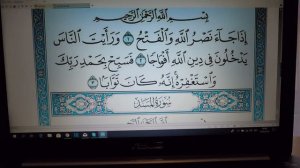 بِسْمِ اللَّهِ الرَّحْمَٰنِ الرَّحِيمِ
إِذَا جَاءَ نَصْرُ اللَّهِ وَالْفَتْحُ ١ وَرَأَيْتَ النَّاسَ
يَدْخُلُونَ فِي دِينِ اللَّهِ أَفْوَاجًا ٢ فَسَبِّحْ بِحَمْدِ رَبِّكَ
وَاسْتَغْفِرْهُ إِنَّهُ كَانَ تَوَّابًا ٣
سُورَةُ الْمَسَدِ